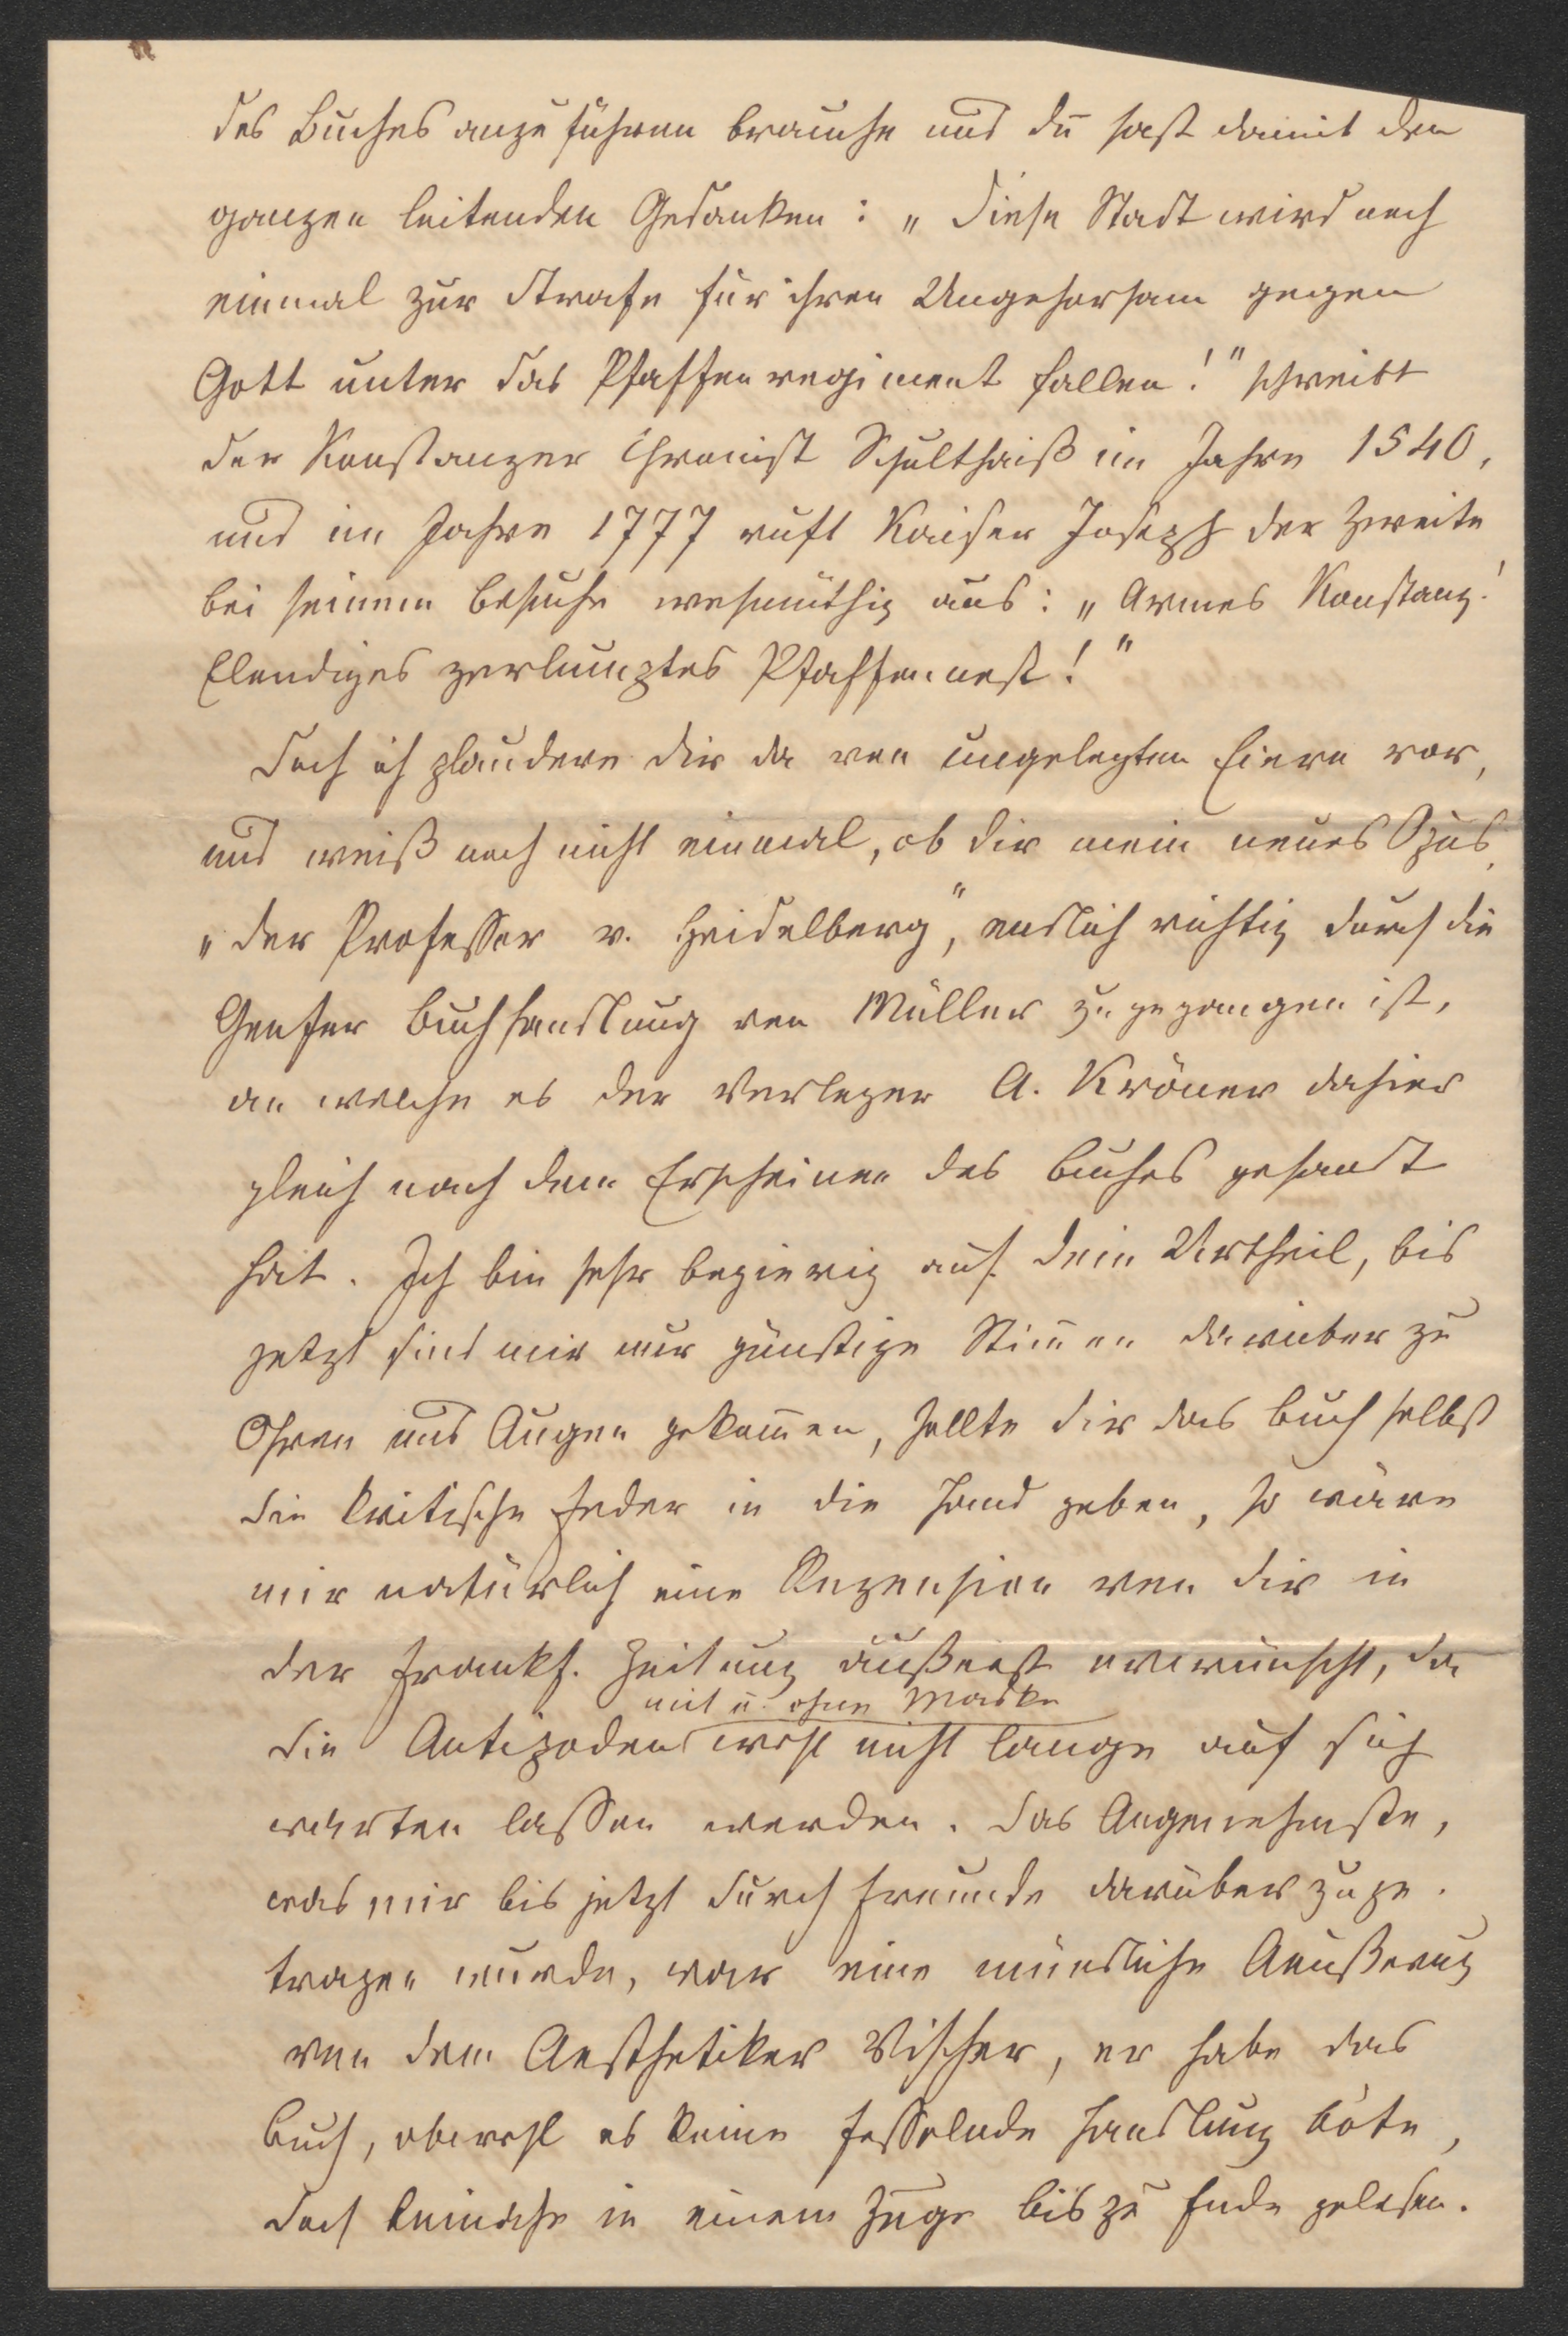 des Buches anzuführen brauche und du hast damit den
ganzen leitenden Gedanken: „Diese Stadt wird noch
einmal zur Strafe für ihren Ungehorsam gegen
Gott unter das Pfaffenregiment fallen!" schreibt
der Konstanzer Chronist Schulthaiß im Jahre 1540,
und im Jahre 1777 ruft Kaiser Joseph der Zweite
bei seinem Besuche wehmüthig aus: „Armes Konstanz!
Elendiges zerlumptes Pfaffennest!"
Doch ich plaudere dir da von ungelegten Eiern vor,
und weiß noch nicht einmal, ob dir mein neues Opus,
„der Professor v. Heidelberg", endlich richtig durch die
Genfer Buchhandlung von Müller zugegangen ist,
an welche es der Verleger A. Kröner dahier
gleich nach dem Erscheinen des Buches gesandt
hat. Ich bin sehr begierig auf dein Urtheil, bis
jetzt sind mir nur günstige Stim̅en darüber zu
Ohren und Augen gekom̅en, sollte dir das Buch selbst
die kritische Feder in die Hand geben, so wäre
mir natürlich eine Rezension von dir in
der Frankf. Zeitung äußerst erwünscht, da
mit u. ohne Maske
die Antipoden wohl nicht lange auf sich
warten lassen werden. Das Angenehmste,
was mir bis jetzt durch Freunde darüber zuge-
tragen wurde, war eine mündliche Aeußerung
von dem Aesthetiker Vischer, er habe das
Buch, obwohl es keine fesselnde Handlung böte,
doch beinahe in einem Zuge bis zu Ende gelesen.